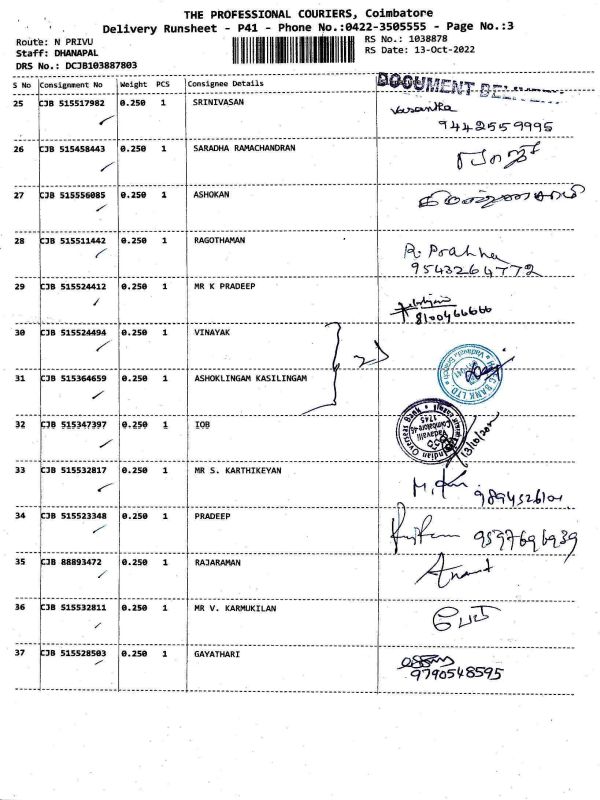 THE PROFESSIONAL COURIERS, Coimbatore
Delivery Runsheet - P41 - Phone No.:0422-3505555 - Page No.:3
Route: N PRIVU
Staff: DHANAPAL
DRS No.: DCJB103887803
RS No.: 1038878
RS Date: 13-Oct-2022
S No Consignment No Weight PCS Consignee Details DOCUMENT
25 CJB 515517982 0.250 1 SRINIVASAN Vasantha
9442559995
26 CJB 515458443 0.250 1 SARADHA RAMACHANDRAN
27 CJB 515556085 0.250 1 ASHOKAN
28 CJB 515511442 0.250 1 RAGOTHAMAN R. Prabha
9543264772
29 CJB 515524412 0.250 1 MR K PRADEEP
8100466666
30 CJB 515524494 0.250 1 VINAYAK
31 CJB 515364659 0.250 1 ASHOKLINGAM KASILINGAM
BANK LTD
32 CJB 515347397 0.250 1 IOB
Indian Overseas
Vadavalli
Coimbatore-46
1745
33 CJB 515532817 0.250 1 MR S. KARTHIKEYAN
34 CJB 515523348 0.250 1 PRADEEP 9597696939
35 CJB 88893472 0.250 1 RAJARAMAN Anand
36 CJB 515532811 0.250 1 MR V. KARMUKILAN
37 CJB 515528503 0.250 1 GAYATHARI
9790548595